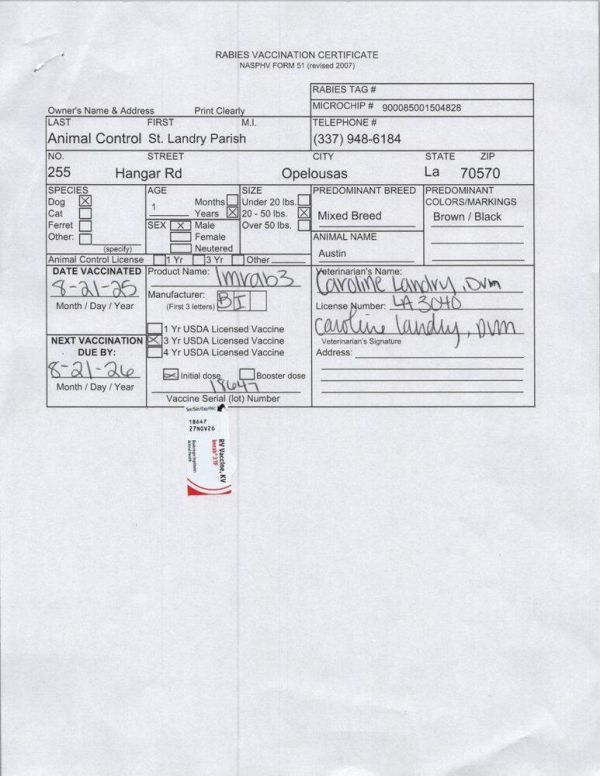 RABIES VACCINATION CERTIFICATE
NASPHV FORM 51 (revised 2007)
RABIES TAG #
Owner's Name & Address Print Clearly
MICROCHIP # 900085001504828
LAST FIRST M.I. TELEPHONE #
Animal Control St. Landry Parish (337) 948-6184
NO. STREET CITY STATE ZIP
255 Hangar Rd Opelousas La 70570
SPECIES AGE SIZE PREDOMINANT BREED PREDOMINANT
Dog Months Under 20 lbs. COLORS/MARKINGS
Cat 1 Years 20 - 50 lbs. Mixed Breed Brown / Black
Ferret SEX Male Over 50 lbs.
Other: Female ANIMAL NAME
(specify) Neutered Austin
Animal Control License 1 Yr 3 Yr Other
DATE VACCINATED Product Name: Imrab3 Veterinarian's Name:
8-21-25 Caroline Landry, DVM
Month / Day / Year Manufacturer: BI License Number: LA 3040
(First 3 letters)
Caroline Landry, DVM
1 Yr USDA Licensed Vaccine
NEXT VACCINATION 3 Yr USDA Licensed Vaccine Veterinarian's Signature
DUE BY: 4 Yr USDA Licensed Vaccine Address:
8-21-26 Initial dose Booster dose
Month / Day / Year 18647
Vaccine Serial (lot) Number
18647
27NOV26
RV Vaccine, KV